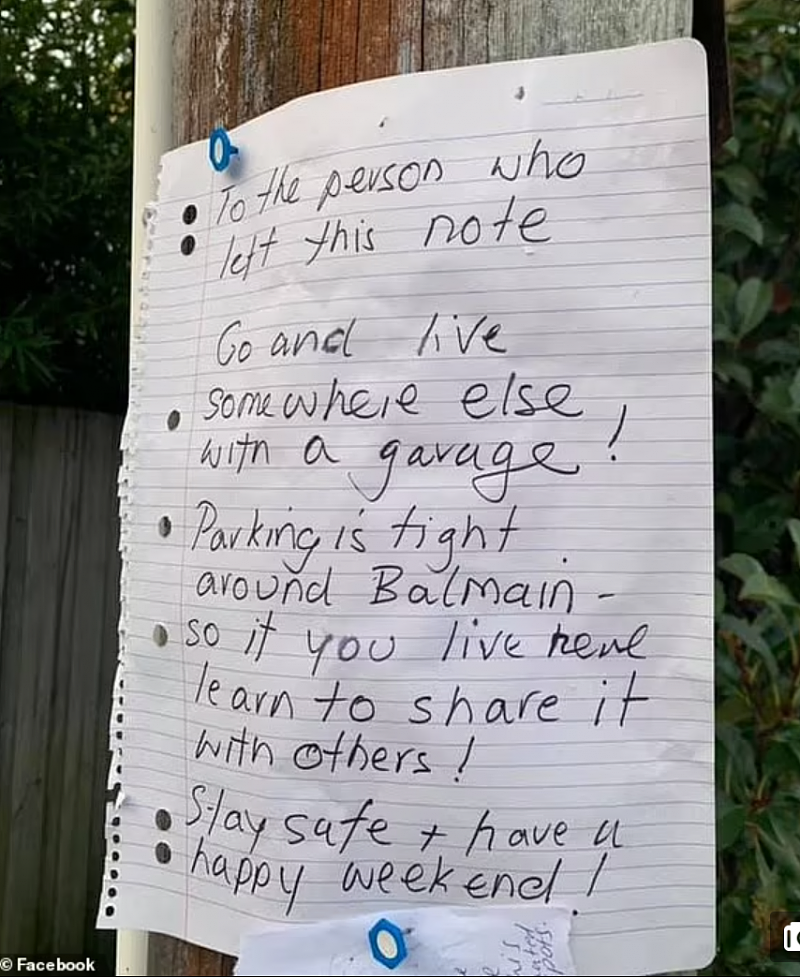 To the person who
left this note
Go and live
somewhere else
with a garage!
Parking is tight
around Balmain -
so if you live here
learn to share it
with others!
Stay safe + have a
happy weekend!
© Facebook